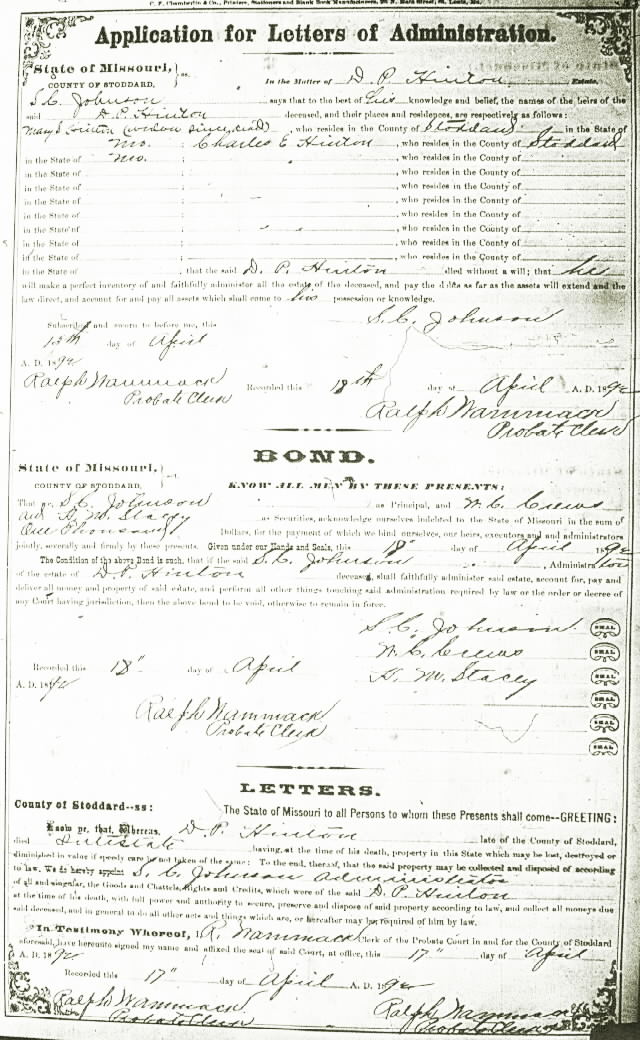 C. F. Chamberlin & Co., Printers, Stationers and Blank Book Manufacturers, St. Louis, Mo.
Application for Letters of Administration.
State of Missouri, } ss.
COUNTY OF STODDARD,
In the Matter of D. P. Hinton Estate.
S. C. Johnson says that to the best of his knowledge and belief, the names of the heirs of the
said D. P. Hinton deceased, and their places and residences, are respectively as follows:
Mary J. Hinton , who resides in the County of Stoddard in the State of
Mo. Charles E Hinton , who resides in the County of Stoddard
in the State of Mo. ; , who resides in the County of
in the State of ; , who resides in the County of
in the State of ; , who resides in the County of
in the State of ; , who resides in the County of
in the State of ; , who resides in the County of
in the State of ; , who resides in the County of
in the State of ; , who resides in the County of
in the State of ; , that the said D. P. Hinton died without a will; that he
will make a perfect inventory of and faithfully administer all the estate of the deceased, and pay the debts as far as the assets will extend and the
law direct, and account for and pay all assets which shall come to his possession or knowledge.
S. C. Johnson
Subscribed and sworn to before me, this
day of April
A. D. 189
Ralph Wammack
Probate Clerk
Recorded this 18th day of April A. D. 189
Ralph Wammack
Probate Clerk
BOND.
State of Missouri, }
COUNTY OF STODDARD,
KNOW ALL MEN BY THESE PRESENTS:
That we, S. C. Johnson as Principal, and W. C. Crews
and H. M. Stacey as Securities, acknowledge ourselves indebted to the State of Missouri in the sum of
One Thousand Dollars, for the payment of which we bind ourselves, our heirs, executors and administrators
jointly, severally and firmly by these presents. Given under our Hands and Seals, this 18" day of April 189
The Condition of the above Bond is such, that if the said S. C. Johnson , Administrator
of the estate of D. P. Hinton deceased, shall faithfully administer said estate, account for, pay and
deliver all money and property of said estate, and perform all other things touching said administration required by law or the order or decree of
any Court having jurisdiction, then the above bond to be void, otherwise to remain in force.
S. C. Johnson SEAL
W. C. Crews SEAL
H. M. Stacey SEAL
SEAL
SEAL
SEAL
Recorded this 18" day of April
A. D. 189
Ralph Wammack
Probate Clerk
LETTERS.
County of Stoddard--ss:
The State of Missouri to all Persons to whom these Presents shall come--GREETING:
Know ye, that, Whereas, D. P. Hinton late of the County of Stoddard,
died intestate having, at the time of his death, property in this State which may be lost, destroyed or
diminished in value if speedy care be not taken of the same: To the end, thereof, that the said property may be collected and disposed of according
to law, We do hereby appoint S. C. Johnson administrator
of all and singular, the Goods and Chattels, Rights and Credits, which were of the said D. P. Hinton
at the time of his death, with full power and authority to secure, preserve and dispose of said property according to law, and collect all moneys due
said deceased, and in general to do all other acts and things which are, or hereafter may be required of him by law.
In Testimony Whereof, I, R. Wammack Clerk of the Probate Court in and for the County of Stoddard
aforesaid, have hereunto signed my name and affixed the seal of said Court, at office, this 17" day of April
A. D. 189
Recorded this 17" day of April A. D. 189
Ralph Wammack
Probate Clerk
Ralph Wammack
Probate Clerk